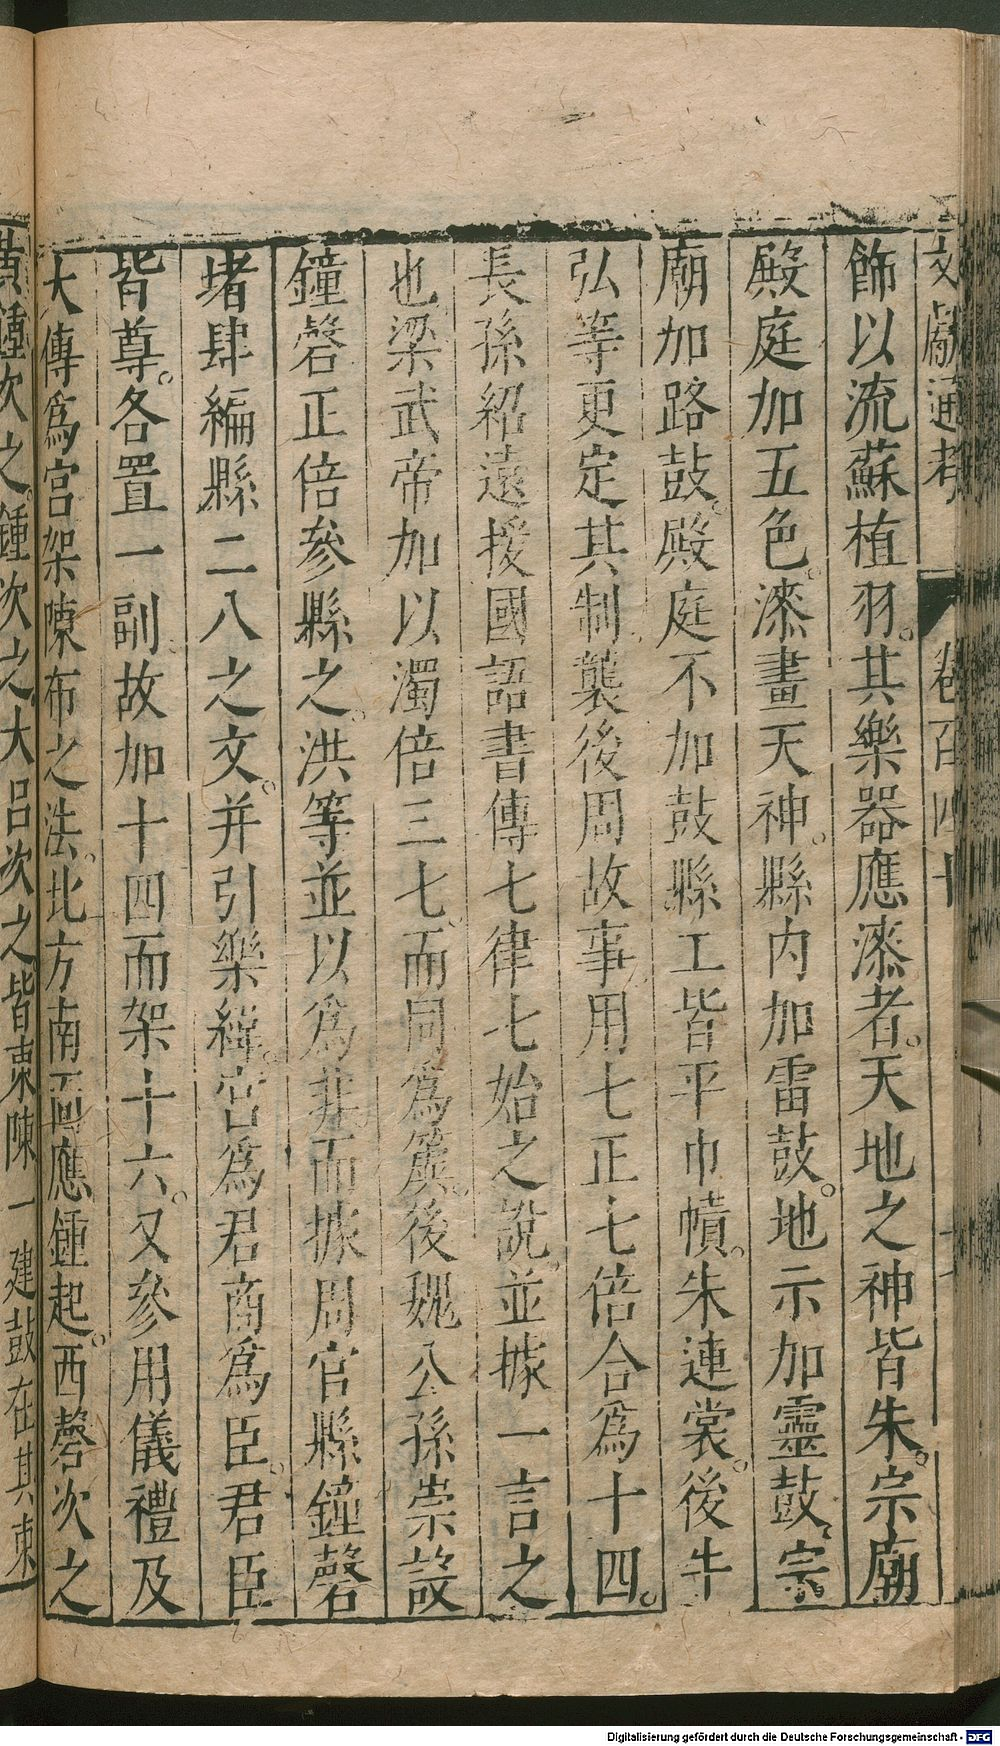 文獻通考 卷百四十
飾以流蘇植羽。其樂器應漆者。天地之神皆朱。宗廟
殿庭加五色。漆畫天神。縣内加雷鼓。地示加靈鼓。宗
廟加路鼓。殿庭不加鼓縣工皆平巾幘。朱連裳。後牛
弘等更定其制襲後周故事用七正七倍合爲十四。
長孫紹遠援國語書傳七律七始之說。並據一言之
也梁武帝加以濁倍三七。而同爲簴。後魏公孫崇設
鐘磬正倍參縣之。洪等並以爲非。而據周官縣鐘磬
堵肆編縣二八之文。并引樂緯。宮爲君商爲臣。君臣
皆尊。各置一副。故加十四而架十六。又參用儀禮及
大傳爲宮架陳布之法。北方南面應鍾起。西磬次之
黃鍾次之。鍾次之。大呂次之皆東陳一建鼓在其東
Digitalisierung gefördert durch die Deutsche Forschungsgemeinschaft - DFG